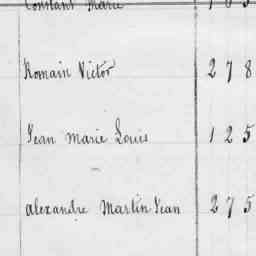 Constant Marie 1 6 5
Romain Victor 2 7 8
Jean Marie Louis 1 2 5
alexandre Martin Jean 2 7 5